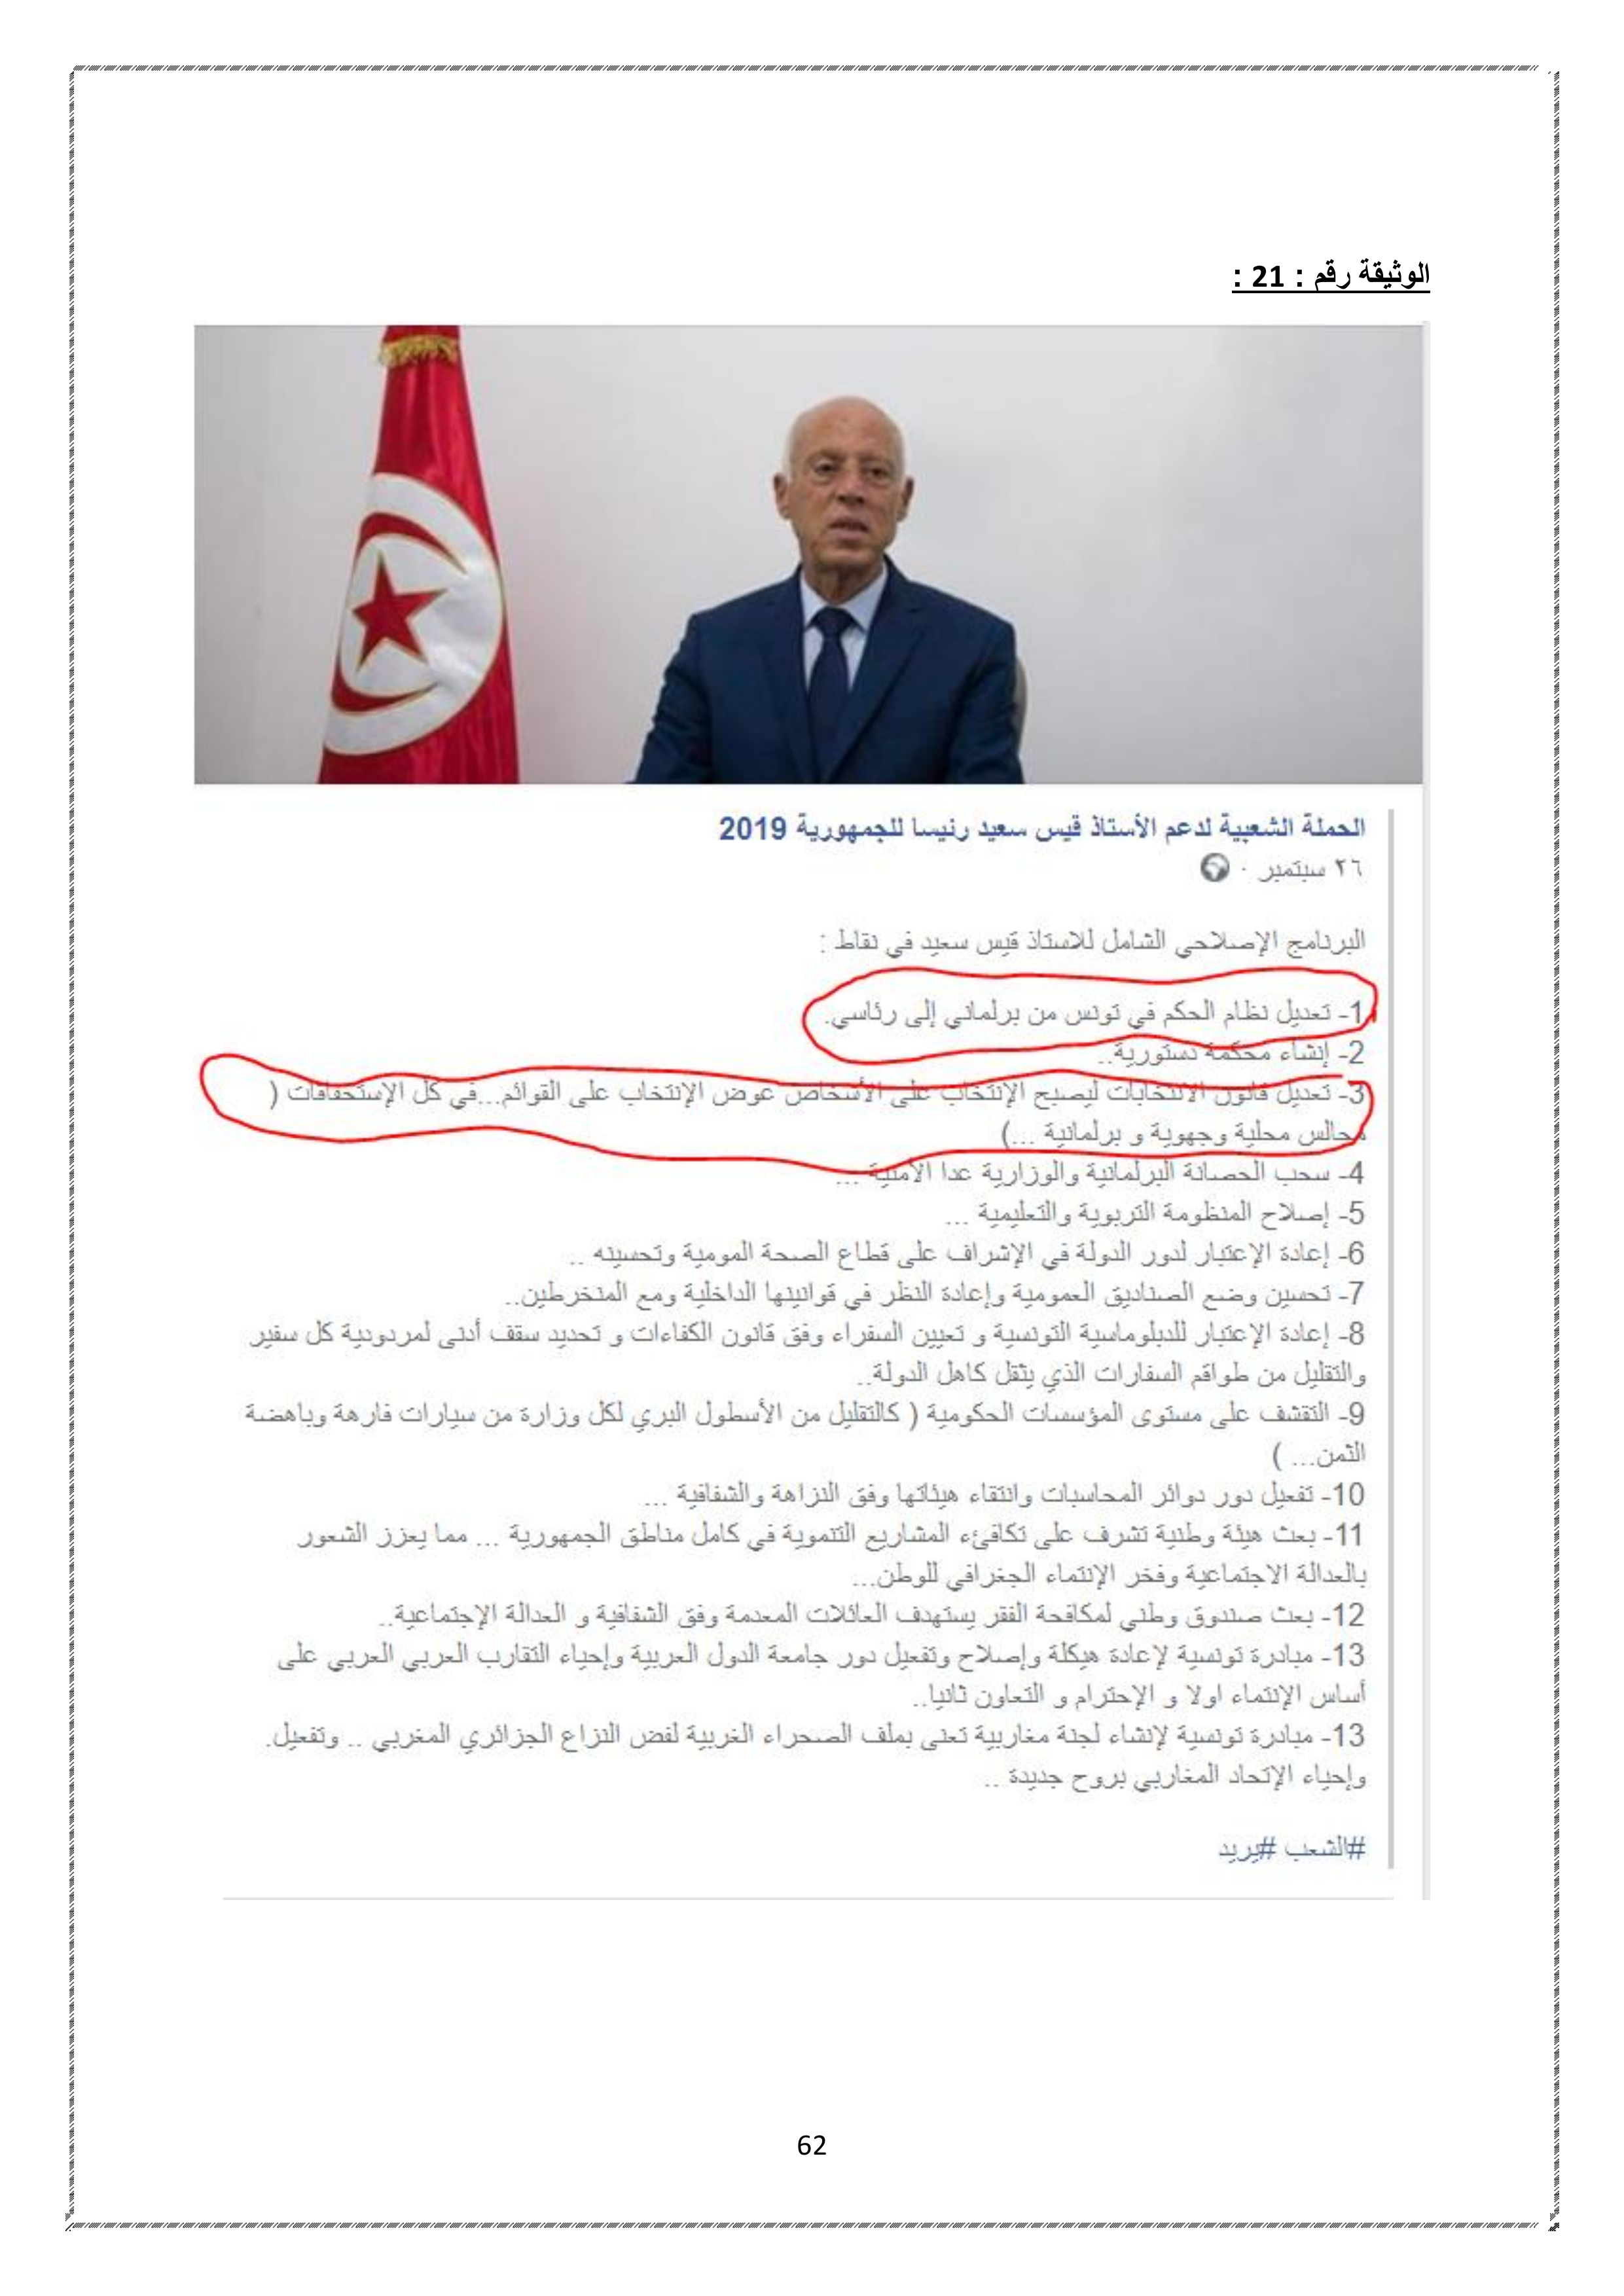 الوثيقة رقم : 21 :
الحملة الشعبية لدعم الأستاذ قيس سعيد رئيسا للجمهورية 2019
٢٦ سبتمبر ·
البرنامج الإصلاحي الشامل للاستاذ قيس سعيد في نقاط :
1- تعديل نظام الحكم في تونس من برلماني إلى رئاسي.
2- إنشاء محكمة دستورية..
3- تعديل قانون الانتخابات ليصبح الإنتخاب على الأشخاص عوض الإنتخاب على القوائم...في كل الإستحقاقات (
مجالس محلية وجهوية و برلمانية ...)
4- سحب الحصانة البرلمانية والوزارية عدا الأمنية ...
5- إصلاح المنظومة التربوية والتعليمية ...
6- إعادة الإعتبار لدور الدولة في الإشراف على قطاع الصحة المومية وتحسينه ..
7- تحسين وضع الصناديق العمومية وإعادة النظر في قوانينها الداخلية ومع المنخرطين..
8- إعادة الإعتبار للدبلوماسية التونسية و تعيين السفراء وفق قانون الكفاءات و تحديد سقف أدنى لمردودية كل سفير
والتقليل من طواقم السفارات الذي يثقل كاهل الدولة..
9- التقشف على مستوى المؤسسات الحكومية ( كالتقليل من الأسطول البري لكل وزارة من سيارات فارهة وباهضة
الثمن... )
10- تفعيل دور دوائر المحاسبات وانتقاء هيئاتها وفق النزاهة والشفافية ...
11- بعث هيئة وطنية تشرف على تكافئء المشاريع التنموية في كامل مناطق الجمهورية ... مما يعزز الشعور
بالعدالة الاجتماعية وفخر الإنتماء الجغرافي للوطن...
12- بعث صندوق وطني لمكافحة الفقر يستهدف العائلات المعدمة وفق الشفافية و العدالة الإجتماعية..
13- مبادرة تونسية لإعادة هيكلة وإصلاح وتفعيل دور جامعة الدول العربية وإحياء التقارب العربي العربي على
أساس الإنتماء اولا و الإحترام و التعاون ثانيا..
13- مبادرة تونسية لإنشاء لجنة مغاربية تعنى بملف الصحراء الغربية لفض النزاع الجزائري المغربي .. وتفعيل.
وإحياء الإتحاد المغاربي بروح جديدة ..
#الشعب #يريد
62